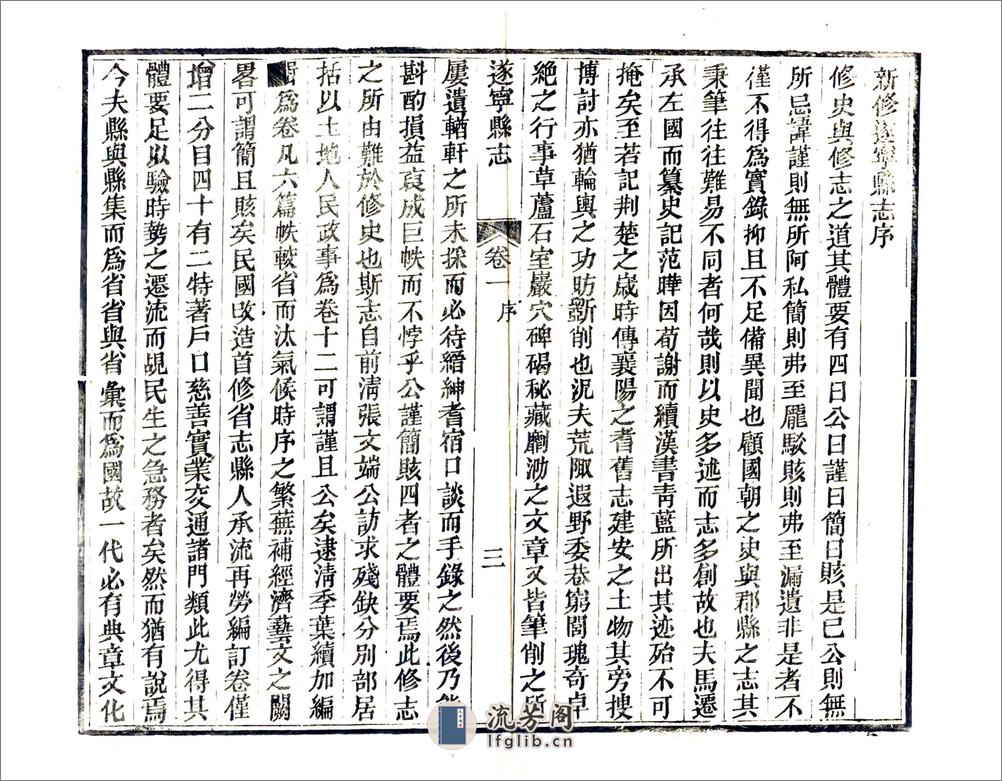 新修遂寧縣志序
修史與修志之道其體要有四曰公曰謹曰簡曰賅是已公則無
所忌諱謹則無所阿私簡則弗至龐駁賅則弗至漏遺非是者不
僅不得爲實錄抑且不足備異聞也顧國朝之史與郡縣之志其
秉筆往往難易不同者何哉則以史多述而志多創故也夫馬遷
承左國而纂史記范曄因荀謝而續漢書靑藍所出其迹殆不可
掩矣至若記荆楚之歲時傳襄陽之耆舊志建安之土物其旁搜
博討亦猶輪輿之功昉斲削也況夫荒陬遐野委巷窮閭瑰奇卓
絶之行事草蘆石室巖穴碑碣秘藏劘泐之文章又皆筆削之
遂寧縣志
卷一
序
三
屢遺輶軒之所未採而必待縉紳耆宿口談而手錄之然後乃
斟酌損益裒成巨帙而不悖乎公謹簡賅四者之體要焉此修志
之所由難於修史也斯志自前淸張文端公訪求殘缺分別部居
括以土地人民政事爲卷十二可謂謹且公矣逮淸季葉續加編
輯爲卷凡六篇帙較省而汰氣候時序之繁蕪補經濟藝文之闕
畧可謂簡且賅矣民國改造首修省志縣人承流再勞編訂卷僅
增二分目四十有二特著戶口慈善實業交通諸門類此尤得其
體要足以驗時勢之遷流而覘民生之急務者矣然而猶有說焉
今夫縣與縣集而爲省省與省彙而爲國故一代必有典章文化
流芳阁
lfglib.cn